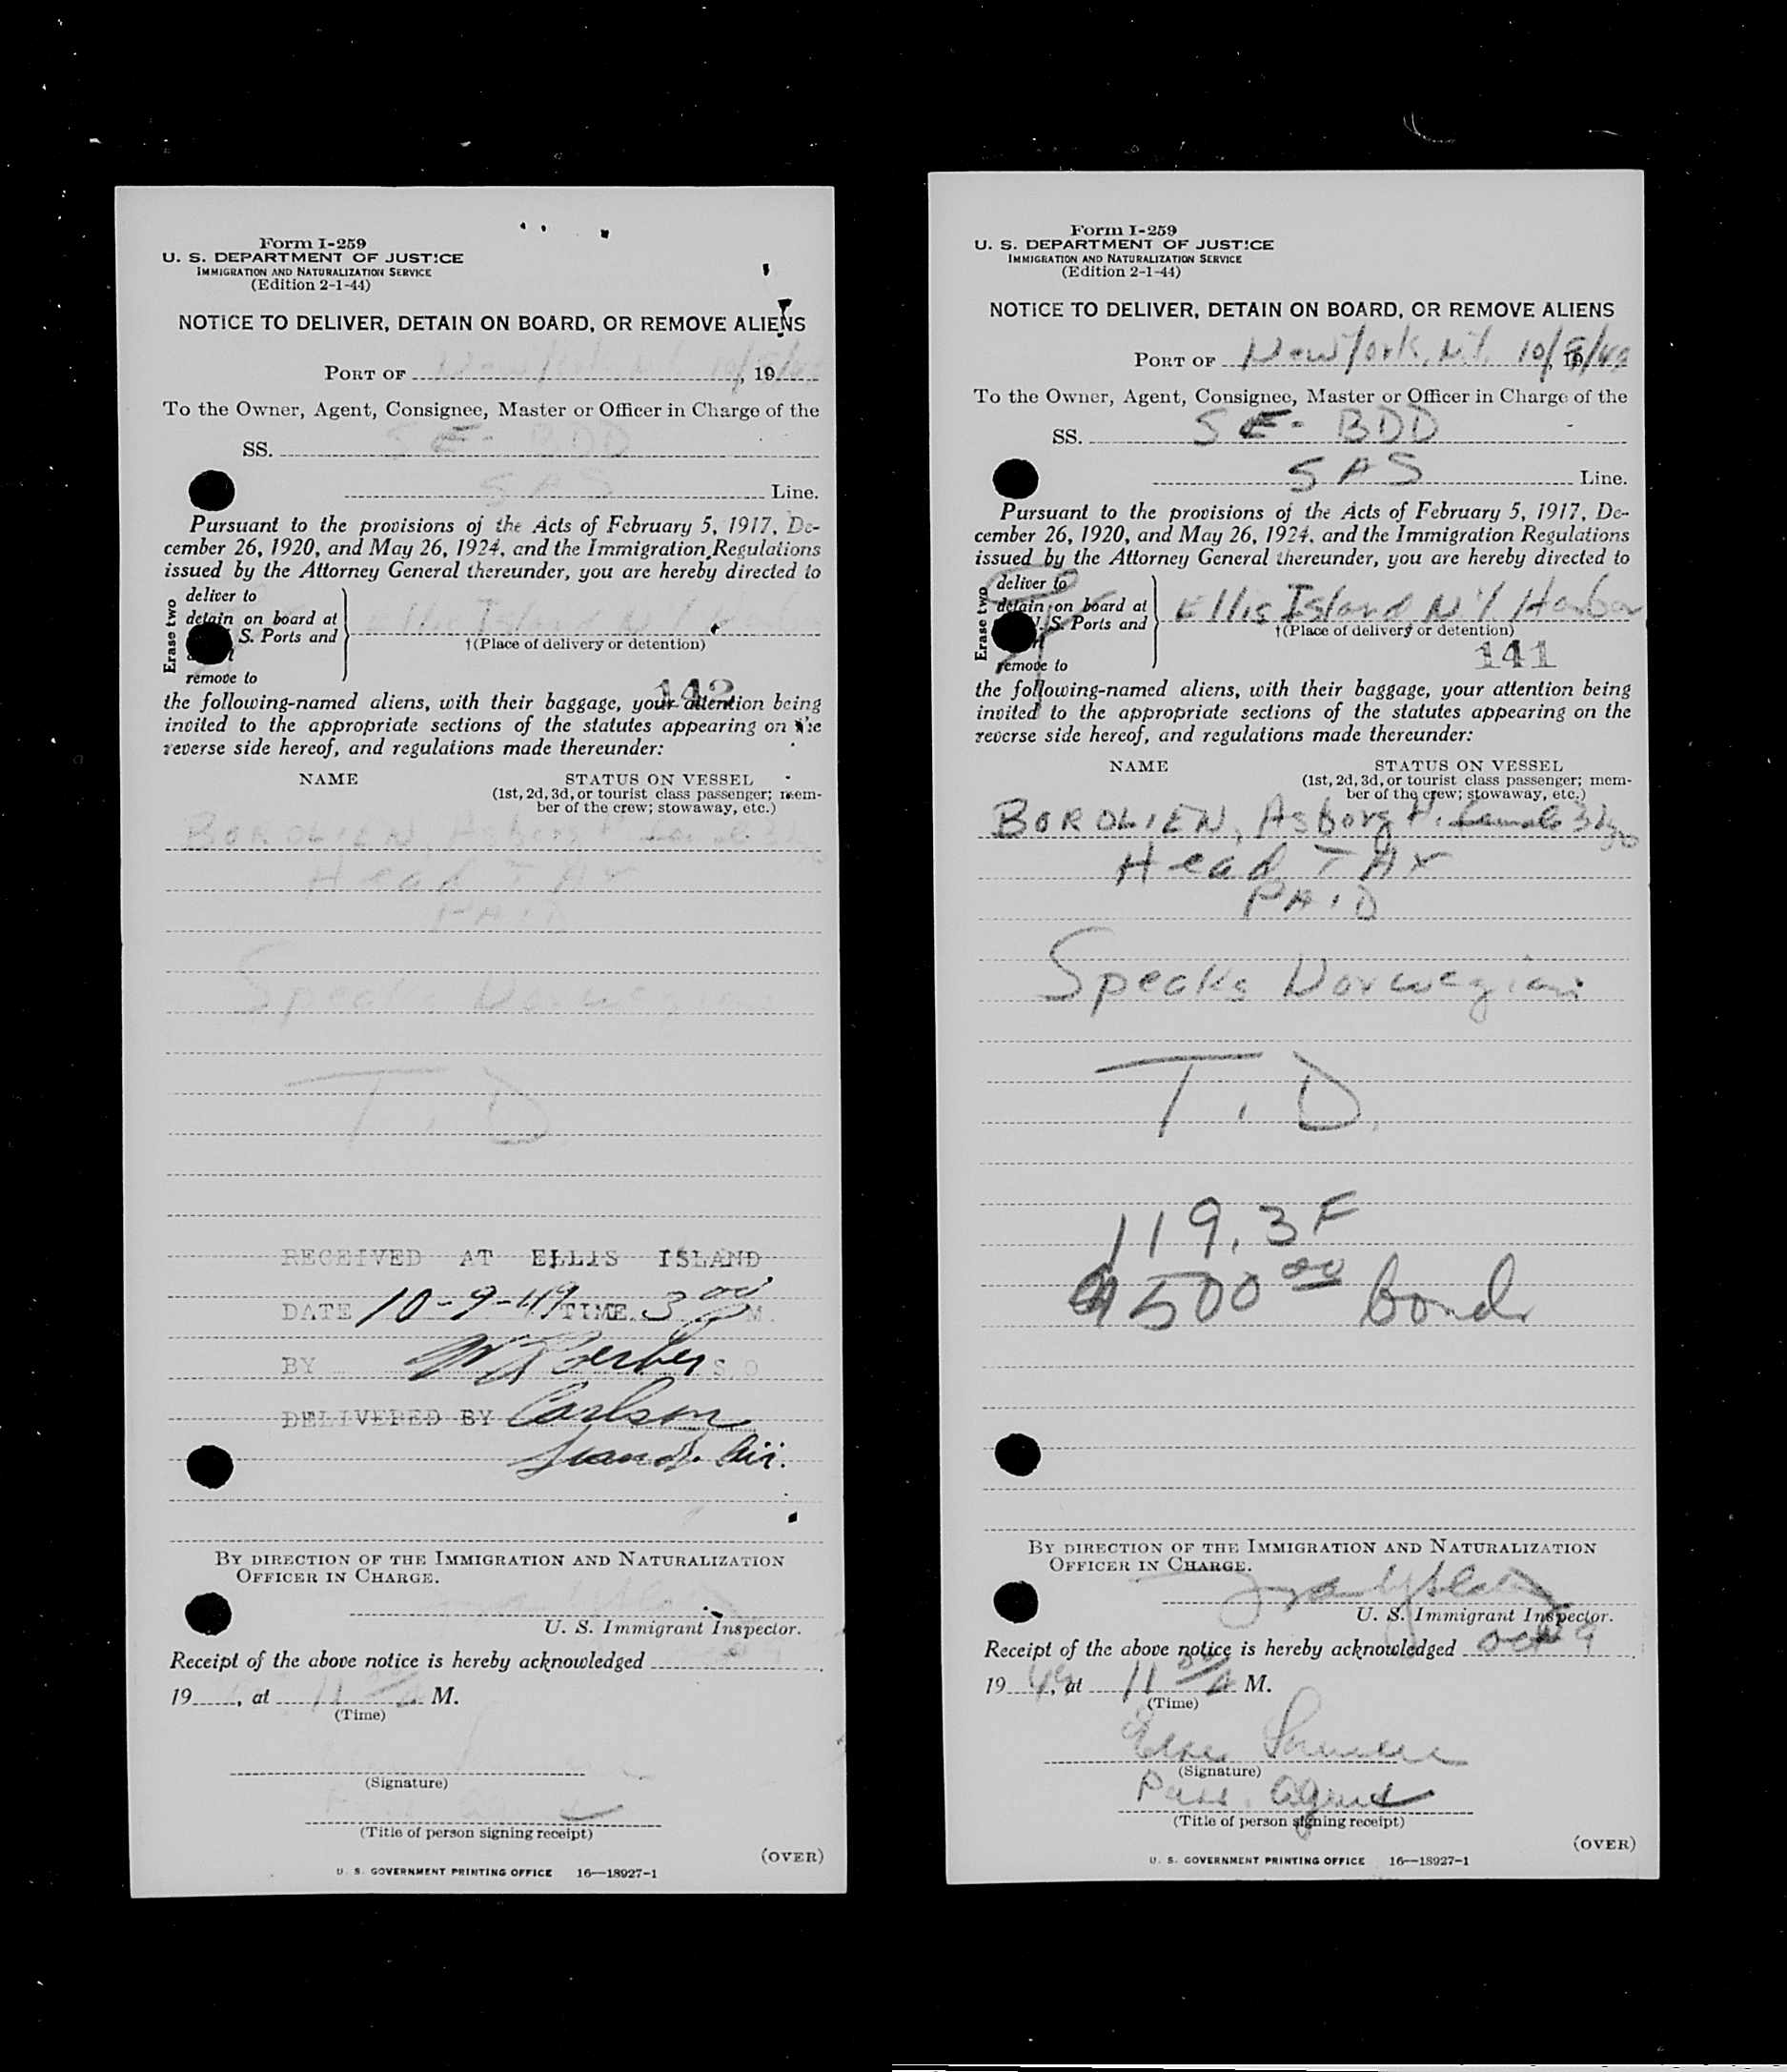 Form I-259
U. S. DEPARTMENT OF JUSTICE
IMMIGRATION AND NATURALIZATION SERVICE
(Edition 2-1-44)
NOTICE TO DELIVER, DETAIN ON BOARD, OR REMOVE ALIENS
PORT OF New York, N.Y. 10/ , 19
To the Owner, Agent, Consignee, Master or Officer in Charge of the
SS. SE- BDD
SAS Line.
Pursuant to the provisions of the Acts of February 5, 1917, De-
cember 26, 1920, and May 26, 1924, and the Immigration Regulations
issued by the Attorney General thereunder, you are hereby directed to
Erase two
deliver to
detain on board at
S. Ports and
remove to
Ellis Island NY Harbor
†(Place of delivery or detention)
142
the following-named aliens, with their baggage, your attention being
invited to the appropriate sections of the statutes appearing on the
reverse side hereof, and regulations made thereunder:
NAME STATUS ON VESSEL
(1st, 2d, 3d, or tourist class passenger; mem-
ber of the crew; stowaway, etc.)
BOROLIEN, Asborg H. female
Head TAX
PAID
Speaks Norwegian
T. D
RECEIVED AT ELLIS ISLAND
DATE 10-9-49 TIME. 3 00 P M.
BY S. O
DELIVERED BY Carlson
Scand. Air.
BY DIRECTION OF THE IMMIGRATION AND NATURALIZATION
OFFICER IN CHARGE.
U. S. Immigrant Inspector.
Receipt of the above notice is hereby acknowledged
19 , at 11 M.
(Time)
(Signature)
Pass. Agent
(Title of person signing receipt)
(OVER)
U. S. GOVERNMENT PRINTING OFFICE 16—18927-1
Form I-259
U. S. DEPARTMENT OF JUSTICE
IMMIGRATION AND NATURALIZATION SERVICE
(Edition 2-1-44)
NOTICE TO DELIVER, DETAIN ON BOARD, OR REMOVE ALIENS
PORT OF New York, N.Y. 10/9/49, 19
To the Owner, Agent, Consignee, Master or Officer in Charge of the
SS. SE- BDD
SAS Line.
Pursuant to the provisions of the Acts of February 5, 1917, De-
cember 26, 1920, and May 26, 1924, and the Immigration Regulations
issued by the Attorney General thereunder, you are hereby directed to
Erase two
deliver to
detain on board at
U. S. Ports and
remove to
Ellis Island NY Harbor
†(Place of delivery or detention)
141
the following-named aliens, with their baggage, your attention being
invited to the appropriate sections of the statutes appearing on the
reverse side hereof, and regulations made thereunder:
NAME STATUS ON VESSEL
(1st, 2d, 3d, or tourist class passenger; mem-
ber of the crew; stowaway, etc.)
BOROLIEN, Asborg H. female
Head TAX
PAID
Speaks Norwegian
T. D.
119.3F
500 00 bond
BY DIRECTION OF THE IMMIGRATION AND NATURALIZATION
OFFICER IN CHARGE.
U. S. Immigrant Inspector.
Receipt of the above notice is hereby acknowledged Oct 9
19 49, at 11 A M.
(Time)
(Signature)
Pass. Agent
(Title of person signing receipt)
(OVER)
U. S. GOVERNMENT PRINTING OFFICE 16—18927-1